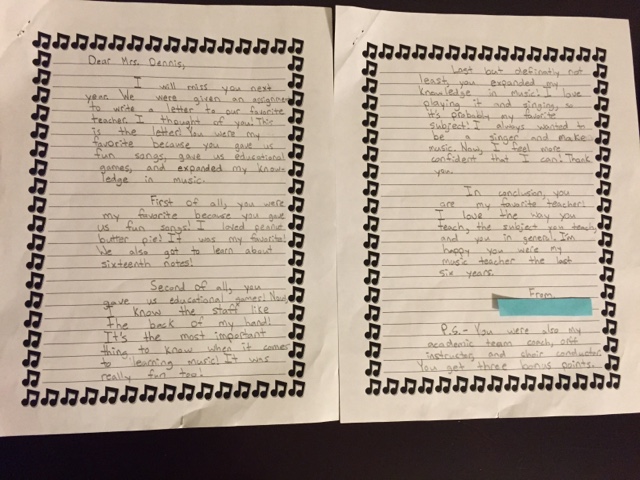 Dear Mrs. Dennis,
I will miss you next
year. We were given an assignment
to write a letter to our favorite
teacher. I thought of you! This
is the letter! You were my
favorite because you gave us
fun songs, gave us educational
games, and expanded my know-
ledge in music.
First of all, you were
my favorite because you gave
us fun songs! I loved peanut
butter pie! It was my favorite!
We also got to learn about
sixteenth notes!
Second of all, you
gave us educational games! Now,
I know the staff like
the back of my hand!
It's the most important
thing to know when it comes
to learning music! It was
really fun too!
Last but definatly not
least, you expanded my
knowledge in music! I love
playing it and singing, so
it's probably my favorite
subject! I always wanted to
be a singer and make
music. Now, I feel more
confident that I can! Thank
you.
In conclusion, you
are my favorite teacher!
I love the way you
teach, the subject you teach,
and you in general. I'm
happy you were my
music teacher the last
six years.
From,
P.S.- You were also my
academic team coach, orff
instructor, and choir conductor.
You get three bonus points.